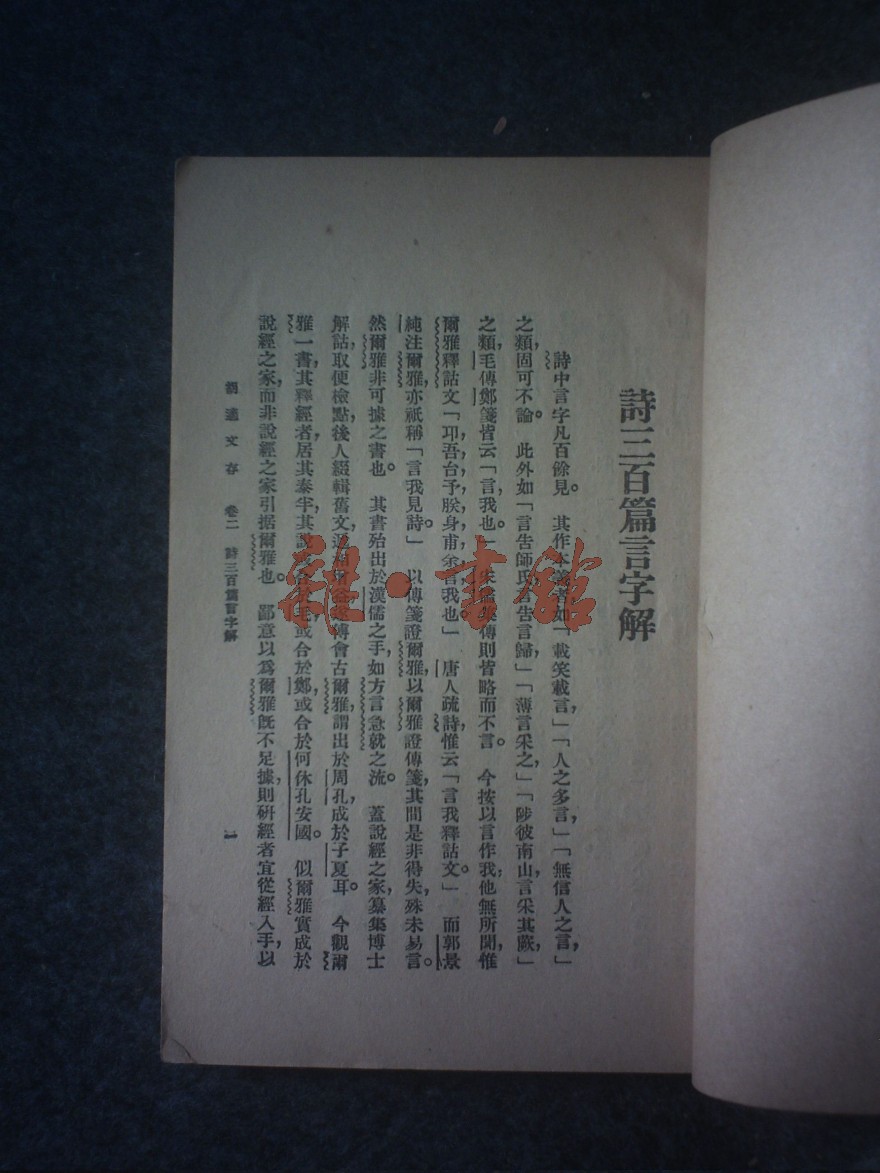 詩三百篇言字解
詩中言字凡百餘見。其作本義者如「載笑載言」,「人之多言」,「無信人之言,」
之類,固可不論。此外如「言告師氏,言告言歸,」「薄言采之」,「陟彼南山,言采其蕨,」
之類,毛傳鄭箋皆云「言,我也。」宋儒集傳則皆略而不言。今按以言作我,他無所聞,惟
爾雅釋詁文「卬吾台予朕身甫余言我也。」唐人疏詩惟云「言我釋詁文。」而郭景
純注爾雅亦祇稱「言我見詩。」以傳箋證爾雅,以爾雅證傳箋,其間是非得失,殊未易言。
然爾雅非可據之書也。其書殆出於漢儒之手,如方言急就之流。蓋說經之家,纂集博士
解詁,取便檢點,後人綴輯舊文,傳會古爾雅,謂出於周孔,成於子夏耳。今觀爾
雅一書,其釋經者,居其泰半,其說或合於毛,或合於鄭,或合於何休孔安國。似爾雅實成於
說經之家,而非說經之家引据爾雅也。鄙意以爲爾雅旣不足據,則研經者宜從經入手,以
文存 卷二 詩三百篇言字解
一
雜·書館